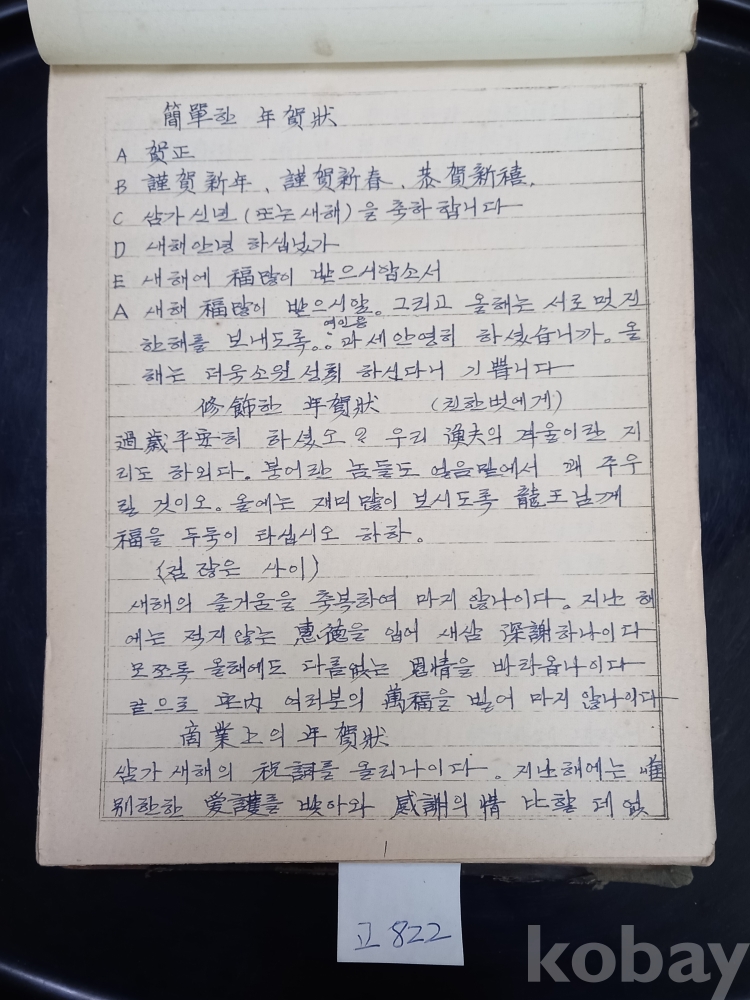 簡單한 年賀狀
A 賀正
B 謹賀新年、謹賀新春、恭賀新禧.
C 삼가 신년 (또는 새해)을 축하 합니다
D 새해안녕 하십닛가
E 새해에 福많이 받으시압소서
A 새해 福많이 받으시압。그리고 올해는 서로 멋진
한해를 보내도록。
여인용
과세안영히 하셨습니까。올
해는 더욱소원성취 하신다니 기쁩니다
修飾한 年賀狀 (친한벗에게)
過歲平安히 하셨오 우리 漁夫의 겨울이란 지
리도 하외다。붕어란 놈들도 얼음밑에서 꽤 추우
릴 것이오。올에는 재미많이 보시도록 龍王님께
福을 두둑이 타십시오 하하。
(점잖은 사이)
새해의 즐거움을 축복하여 마지 않나이다。지난 해
에는 적지않는 惠德을 입어 새삼 深謝하나이다
모쪼록 올해에도 다름없는 恩情을 바라옵나이다
끝으로 宅內 여러분의 萬福을 빌어 마지 않나이다
商業上의 年賀狀
삼가 새해의 祝詞를 올리나이다。지난해에는
別한한 愛護를 받아와 感謝의 情 比할 데 없
1
고 822
kobay